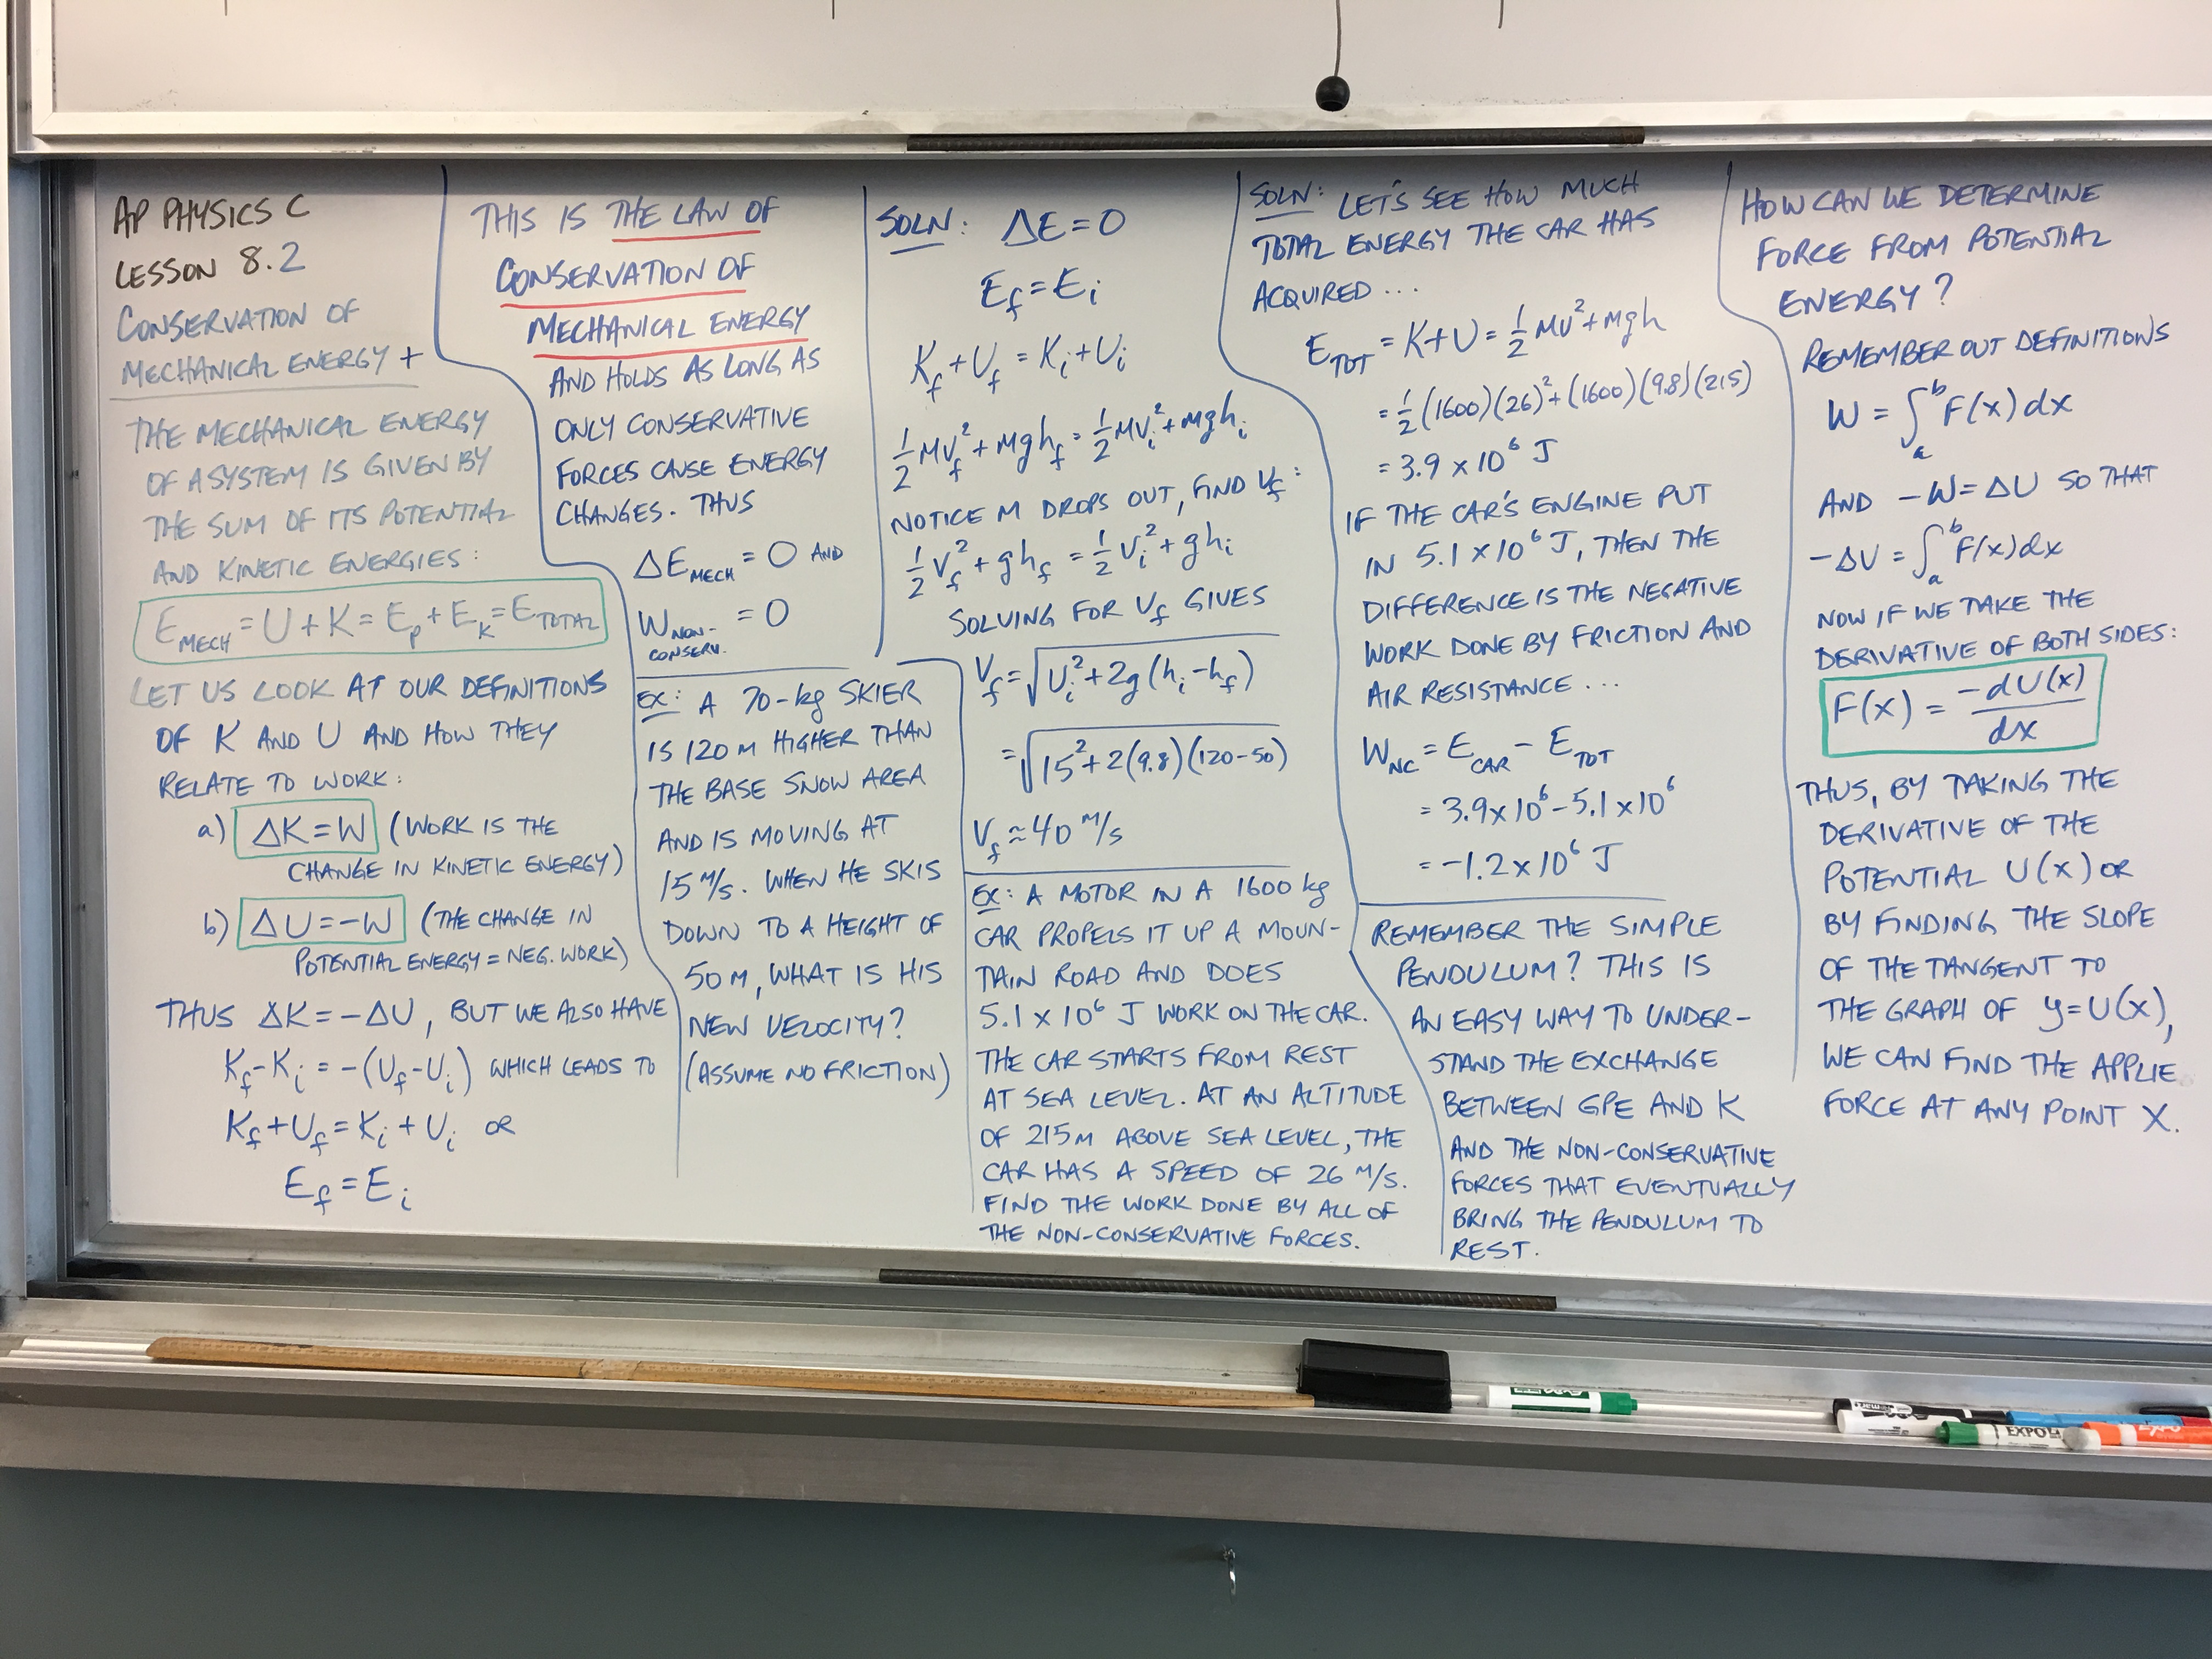 AP PHYSICS C
LESSON 8.2
CONSERVATION OF
MECHANICAL ENERGY +
THE MECHANICAL ENERGY
OF A SYSTEM IS GIVEN BY
THE SUM OF ITS POTENTIAL
AND KINETIC ENERGIES:
E_MECH = U + K = E_p + E_K = E_TOTAL
LET US LOOK AT OUR DEFINITIONS
OF K AND U AND HOW THEY
RELATE TO WORK:
a) ΔK = W (WORK IS THE
CHANGE IN KINETIC ENERGY)
b) ΔU = -W (THE CHANGE IN
POTENTIAL ENERGY = NEG. WORK)
THUS ΔK = -ΔU, BUT WE ALSO HAVE
K_f - K_i = -(U_f - U_i) WHICH LEADS TO
K_f + U_f = K_i + U_i OR
E_f = E_i
THIS IS THE LAW OF
CONSERVATION OF
MECHANICAL ENERGY
AND HOLDS AS LONG AS
ONLY CONSERVATIVE
FORCES CAUSE ENERGY
CHANGES. THUS
ΔE_MECH = 0 AND
W_NON-CONSERV. = 0
EX: A 70-kg SKIER
IS 120 M HIGHER THAN
THE BASE SNOW AREA
AND IS MOVING AT
15 M/S. WHEN HE SKIS
DOWN TO A HEIGHT OF
50 M, WHAT IS HIS
NEW VELOCITY?
(ASSUME NO FRICTION)
SOLN: ΔE = 0
E_f = E_i
K_f + U_f = K_i + U_i
1/2 MV_f² + Mgh_f = 1/2 MV_i² + Mgh_i
NOTICE M DROPS OUT, FIND V_f:
1/2 V_f² + gh_f = 1/2 V_i² + gh_i
SOLVING FOR V_f GIVES
V_f = √(V_i² + 2g(h_i - h_f))
= √(15² + 2(9.8)(120-50))
V_f ≈ 40 M/S
EX: A MOTOR IN A 1600 kg
CAR PROPELS IT UP A MOUN-
TAIN ROAD AND DOES
5.1 x 10⁶ J WORK ON THE CAR.
THE CAR STARTS FROM REST
AT SEA LEVEL. AT AN ALTITUDE
OF 215M ABOVE SEA LEVEL, THE
CAR HAS A SPEED OF 26 M/S.
FIND THE WORK DONE BY ALL OF
THE NON-CONSERVATIVE FORCES.
SOLN: LET'S SEE HOW MUCH
TOTAL ENERGY THE CAR HAS
ACQUIRED...
E_TOT = K+U = 1/2 MV² + Mgh
= 1/2 (1600)(26)² + (1600)(9.8)(215)
= 3.9 x 10⁶ J
IF THE CAR'S ENGINE PUT
IN 5.1 x 10⁶ J, THEN THE
DIFFERENCE IS THE NEGATIVE
WORK DONE BY FRICTION AND
AIR RESISTANCE...
W_NC = E_CAR - E_TOT
= 3.9 x 10⁶ - 5.1 x 10⁶
= -1.2 x 10⁶ J
REMEMBER THE SIMPLE
PENDULUM? THIS IS
AN EASY WAY TO UNDER-
STAND THE EXCHANGE
BETWEEN GPE AND K
AND THE NON-CONSERVATIVE
FORCES THAT EVENTUALLY
BRING THE PENDULUM TO
REST.
HOW CAN WE DETERMINE
FORCE FROM POTENTIAL
ENERGY?
REMEMBER OUT DEFINITIONS
W = ∫_a^b F(x)dx
AND -W = ΔU SO THAT
-ΔU = ∫_a^b F(x)dx
NOW IF WE TAKE THE
DERIVATIVE OF BOTH SIDES:
F(x) = -dU(x)/dx
THUS, BY TAKING THE
DERIVATIVE OF THE
POTENTIAL U(x) OR
BY FINDING THE SLOPE
OF THE TANGENT TO
THE GRAPH OF y = U(x),
WE CAN FIND THE APPLIE
FORCE AT ANY POINT X.
EXPO